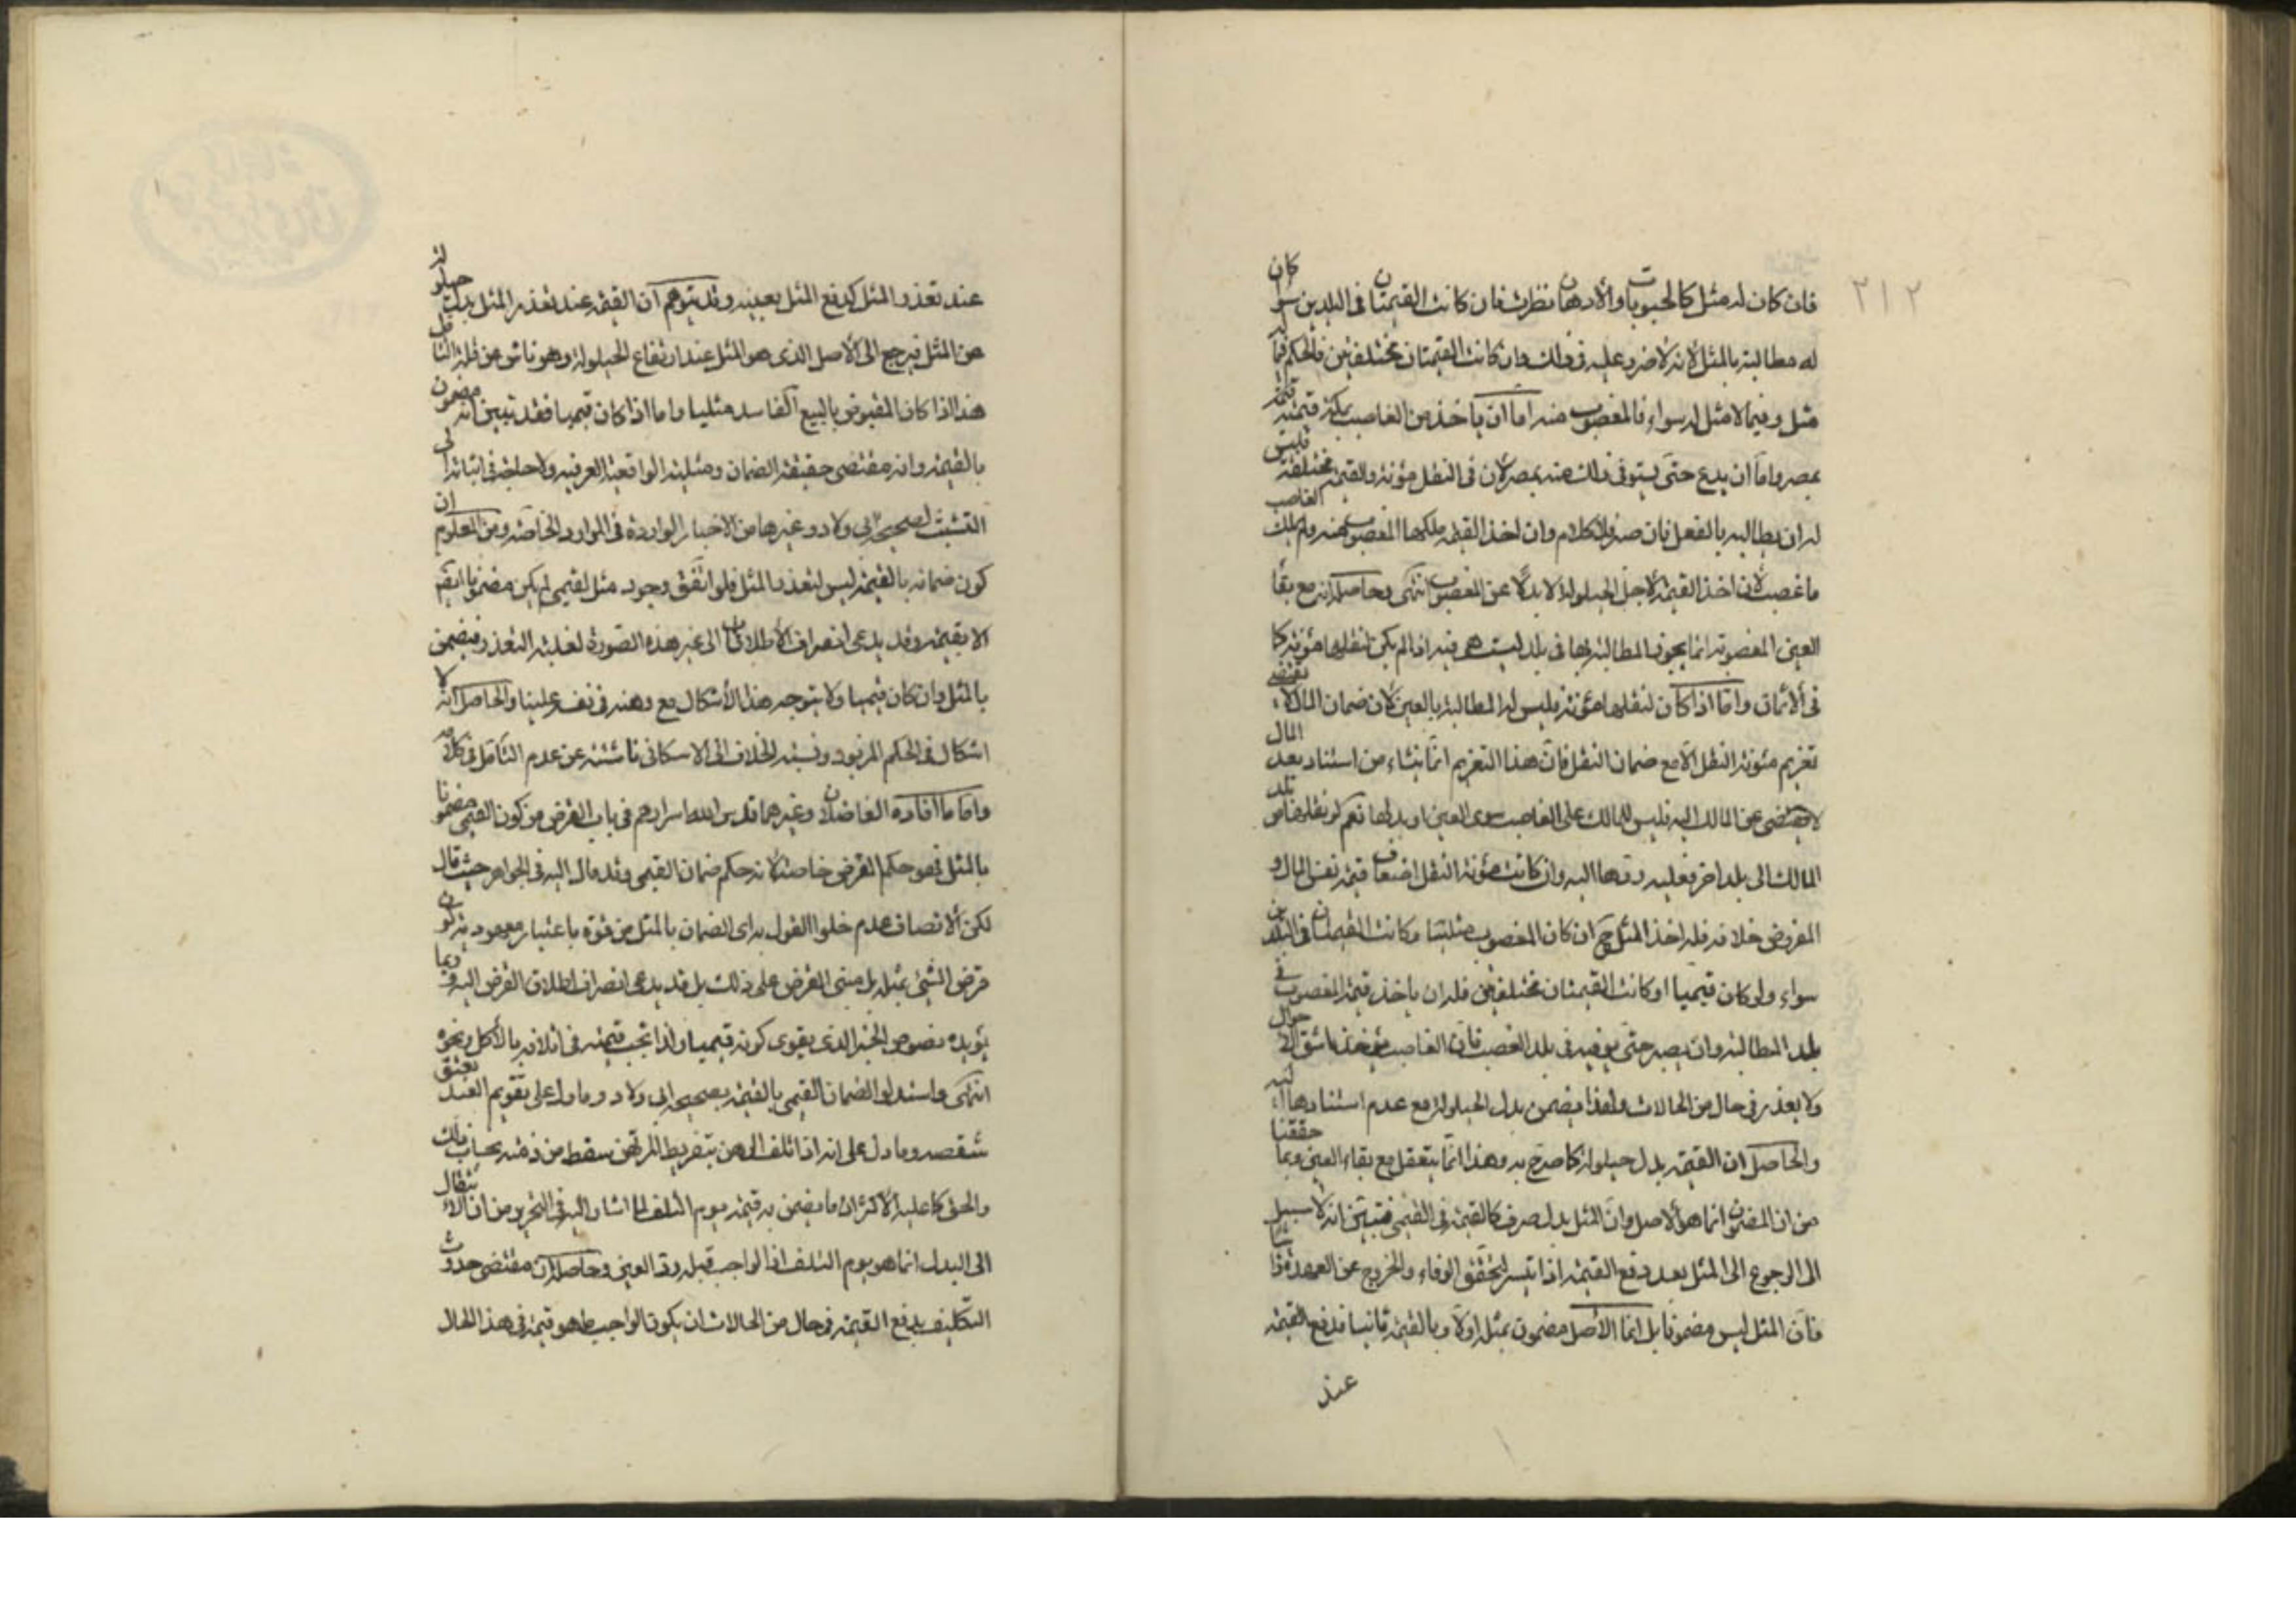 ٢١٢
فان كان له مثل كالحبوبات والأدهان نظرت فان كانت القيمتان فى البلدين سواء كان
له مطالبته بالمثل لانه لا ضرر عليه فى ذلك وان كانت القيمتان مختلفتين فالحكم فيما له
مثل وفيما لا مثل له سواء فالمغصوب منه اما ان ياخذ من الغاصب بمكة قيمته
بمصر واما ان يدع حتى يستوفى ذلك منه بمصر لان فى النقل مؤنة والقيمة مختلفة فليس
له ان يطالبه بالفعل بان كلام وان اخذ القيمة ملكها المغصوب منه ولم يملك الغاصب
ما غصب لان اخذ القيمة لاجل الحيلولة لا بدلا عن المغصوب انتهى وحاصله انه مع بقاء
العين المغصوبة انما يجوز المطالبة بها فى بلد ليست هى فيه اذا لم يكن لنقلها مؤنة كما
فى الأثمان واما اذا كان لنقلها مؤنة فليس له المطالبة بالعين لان ضمان المال لا يقتضى
تغريم مئونة النقل الا مع ضمان النقل فان هذا التغريم انما ينشاء من استناد بعد المال
عن المالك اليه فليس للمالك على الغاصب سوى العين او بدلها نعم لو نقلها من بلد
المالك الى بلد اخر فعليه ردها اليه وان كانت مئونة النقل اضعاف قيمة نفس المال و
المفروض خلافه فله اخذ المثل ح ان كان المغصوب مثليا وكانت القيمتان فى البلدين
سواء ولو كان قيميا او كانت القيمتان مختلفتين فله ان ياخذ قيمة المغصوب فى
بلد المطالبة وان يصبر حتى يوفيه فى بلد الغصب فان الغاصب يؤخذ باشق الأحوال
ولا يعذر فى حال من الحالات ولهذا يضمن بدل الحيلولة مع عدم استنادها اليه
والحاصل ان القيمة بدل حيلولة كما صرح به وهذا انما يتعقل مع بقاء العين وبما حققنا
من ان المضمون انما هو الأصل وان المثل بدل صرف كالقيمة فى القيمى فتبين انه لا سبيل
الى الرجوع الى المثل بعد دفع القيمة اذا تيسر لتحقق الوفاء والخروج عن العهدة
فان المثل ليس مضمونا بل انما الأصل مضمون بمثله اولا وبالقيمة ثانيا فدفع القيمة
عند
عند تعذر المثل كدفع المثل بعينه وقد يتوهم ان القيمة عند تعذر المثل بدل حيلولة
عن المثل فيرجع الى الأصل الذى هو المثل عند ارتفاع الحيلولة وهو ناش من قلة التامل
هذا اذا كان المقبوض بالبيع الفاسد مثليا واما اذا كان قيميا فقد تبين انه مضمون
بالقيمة وانه مقتضى حقيقة الضمان ومثليته الواقعية العرفية ولا حاجة فى اثباته الى
التشبث بصحيحة ابى ولاد وغيرها من الاخبار الواردة فى الموارد الخاصة ومن المعلوم ان
كون ضمانه بالقيمة ليس لتعذر المثل فلو اتفق وجود مثل لقيمى لم يكن مضمونا ايضا
الا بقيمته وقد يدعى انصراف الأطلاقات الى غير هذه الصورة لغلبة التعذر فيضمن
بالمثل وان كان قيميا ولا يتوجه هذا الأشكال مع وهنه فى نفسه علينا والحاصل انه لا
اشكال فى الحكم المزبور ونسبة الخلاف الى الاسكافى ناشئة عن عدم التامل فى كلامه
واما ما افاده الفاضلان وغيرهما قدس الله اسرارهم فى باب القرض من كون القيمى مضمونا
بالمثل فهو حكم القرض خاصة لا نه حكم ضمان القيمى وقد مال اليه فى الجواهر حيث قال
لكن الانصاف عدم خلو القول به اى الضمان بالمثل من قوة باعتبار معهودية كون
قرض الشئ بمثله بل مبنى القرض على ذلك بل قد يدعى انصراف اطلاق القرض اليه وربما
يؤيده نصوص الخبز الذى يقوى كونه قيميا ولذا تجب قيمته فى اتلافه بالأكل ونحوه
انتهى واستدلوا لضمان القيمى بالقيمة بصحيحة ابى ولاد وما دل على تقويم العبد يعتق
شقصه وما دل على انه اذا تلف الرهن بتفريط المرتهن سقط من ذمته بحساب ذلك
والحق كما عليه الأكثر ان ما يضمن به قيمة يوم التلف لما اشار اليه فى التحرير من ان الانتقال
الى البدل انما هو يوم التلف اذ الواجب قبله رد العين وحاصله ان مقتضى حدوث
التكليف بدفع القيمة فى حال من الحالات ان يكون الواجب ما هو قيمة فى هذا الحال